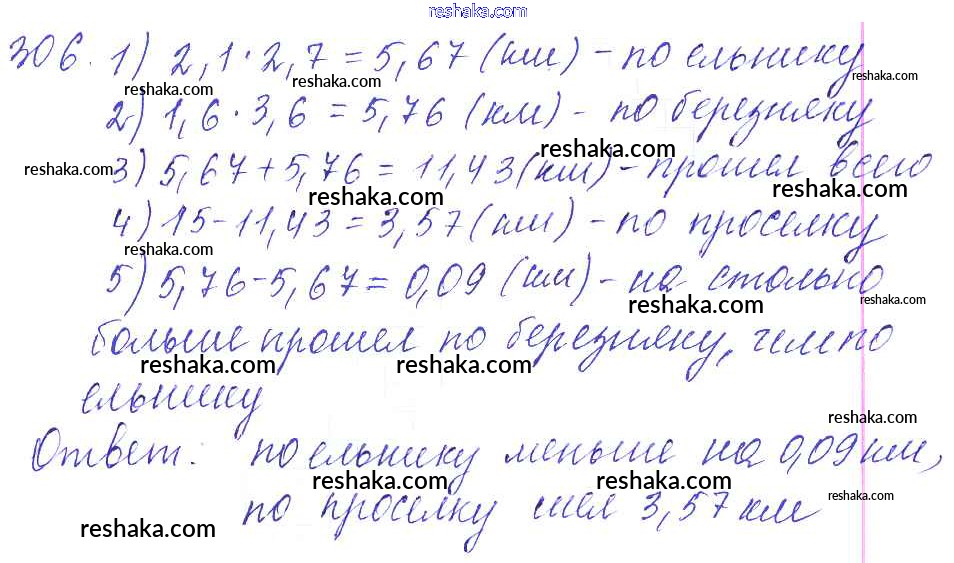 reshaka.com
306. 1) 2,1·2,7=5,67 (км) - по ельнику
reshaka.com reshaka.com
2) 1,6·3,6=5,76 (км) - по березняку
reshaka.com reshaka.com
3) 5,67+5,76=11,43 (км) - прошел всего
reshaka.com reshaka.com
4) 15-11,43=3,57 (км) - по проселку
reshaka.com
5) 5,76-5,67=0,09 (км) - на столько
reshaka.com reshaka.com
больше прошел по березняку, чем по
reshaka.com reshaka.com
ельнику
reshaka.com
Ответ: по ельнику меньше на 0,09 км,
reshaka.com reshaka.com reshaka.com
по проселку шел 3,57 км
reshaka.com
reshaka.com